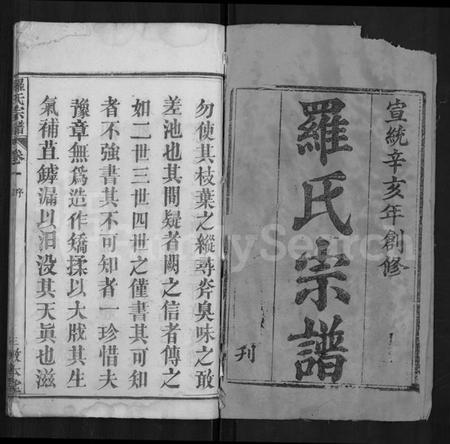 宣統辛亥年創修
羅氏宗譜
刊
勿使其枝葉之縱尋斧臭味之敢
差池也其間疑者闕之信者傳之
如二世三世四世之僅書其可知
者不強書其不可知者一珍惜夫
豫章無為造作矯揉以大戕其生
氣補苴罅漏以汩没其天眞也滋
羅氏宗譜
卷一
序
敦本堂
MySearch